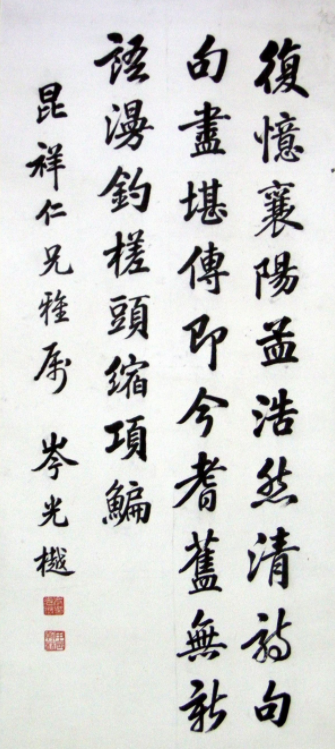 復憶襄陽孟浩然清詩句
句盡堪傳即今耆舊無新
語漫釣槎頭縮項鯿
昆祥仁兄雅属 岑光樾